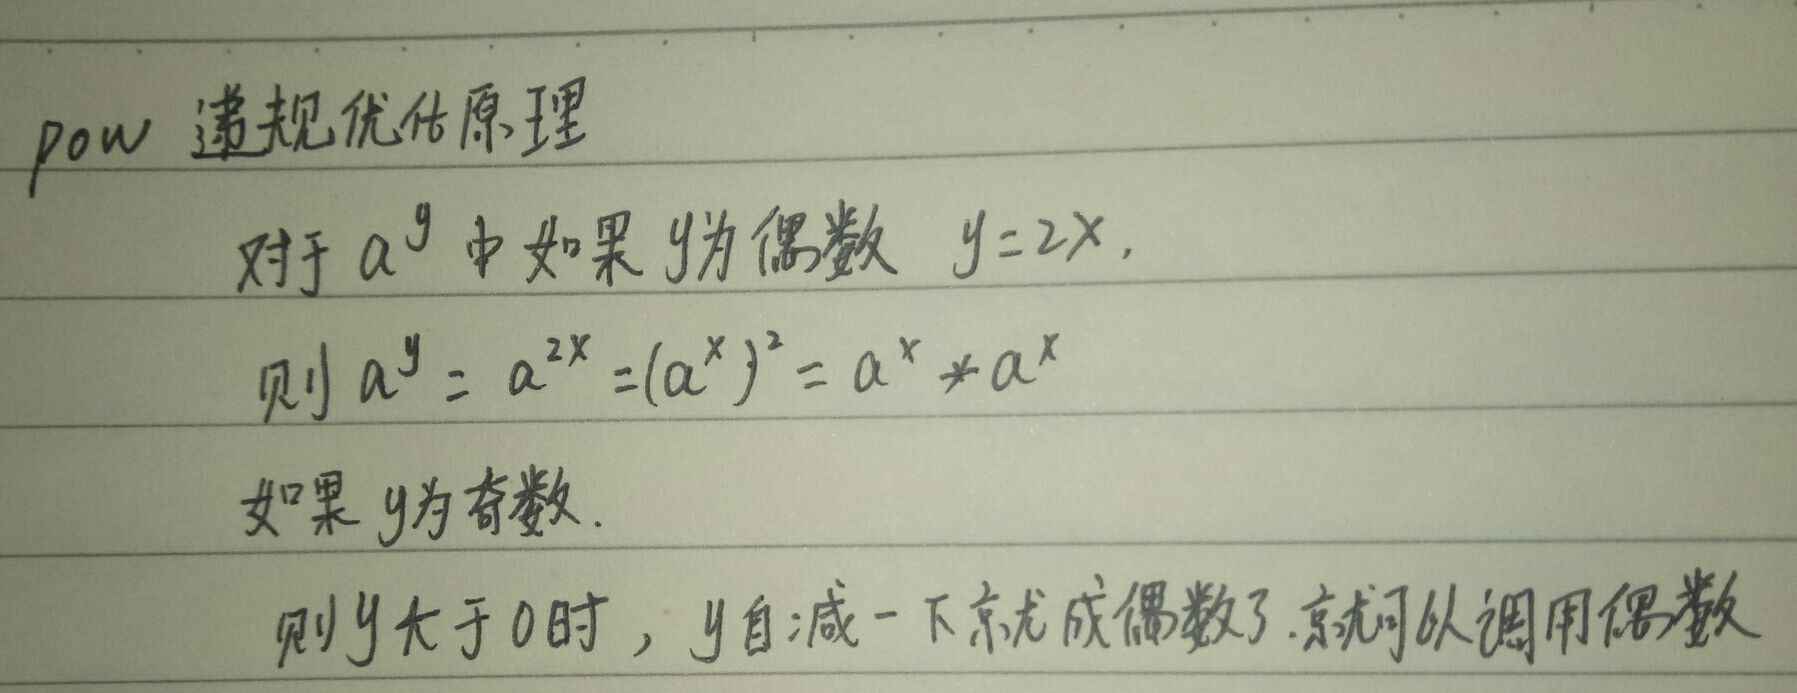 pow 递规优化原理
对于 a^y 中如果 y为偶数 y=2x,
则 a^y = a^{2x} = (a^x)^2 = a^x * a^x
如果 y为奇数.
则y大于0时，y自减一下就成偶数了.就可以调用偶数